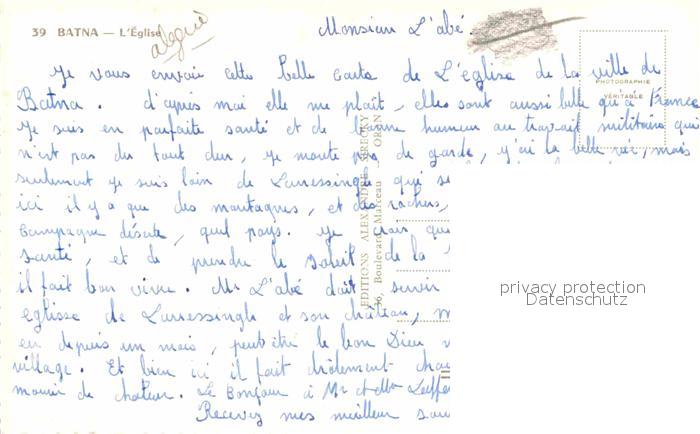 39 BATNA — L'Église
algérie
Monsieur L'abé.
Je vous envoi cette belle carte de L'église de la ville de
Batna. d'aprés moi elle me plaît, elles sont aussi belle qu'a France
Je suis en parfaite santé et de bonne humeur au travail militaire qui
n'est pas du tout dur, je monte pas de garde, j'ai la belle vie, mais
seulement je suis loin de Larressingle qui se
ici il y a que des montagnes, et des rochers,
Campagne déserte, quel pays. Je crois que
santé, et de prendre le soleil de la
il fait bon vivre. Mr L'abé doit servir
eglisse de Larressingle et son château,
en depuis un mois, peut être le bon Dieu
village. Et bien ici il fait drôlement chau
mourir de chaleur. Le Bonjour à Mr et Mme
Recevez mes meilleur sou
PHOTOGRAPHIE
VÉRITABLE
EDITIONS ALEXANDRE
36, Boulevard Marceau ORAN
privacy protection
Datenschutz